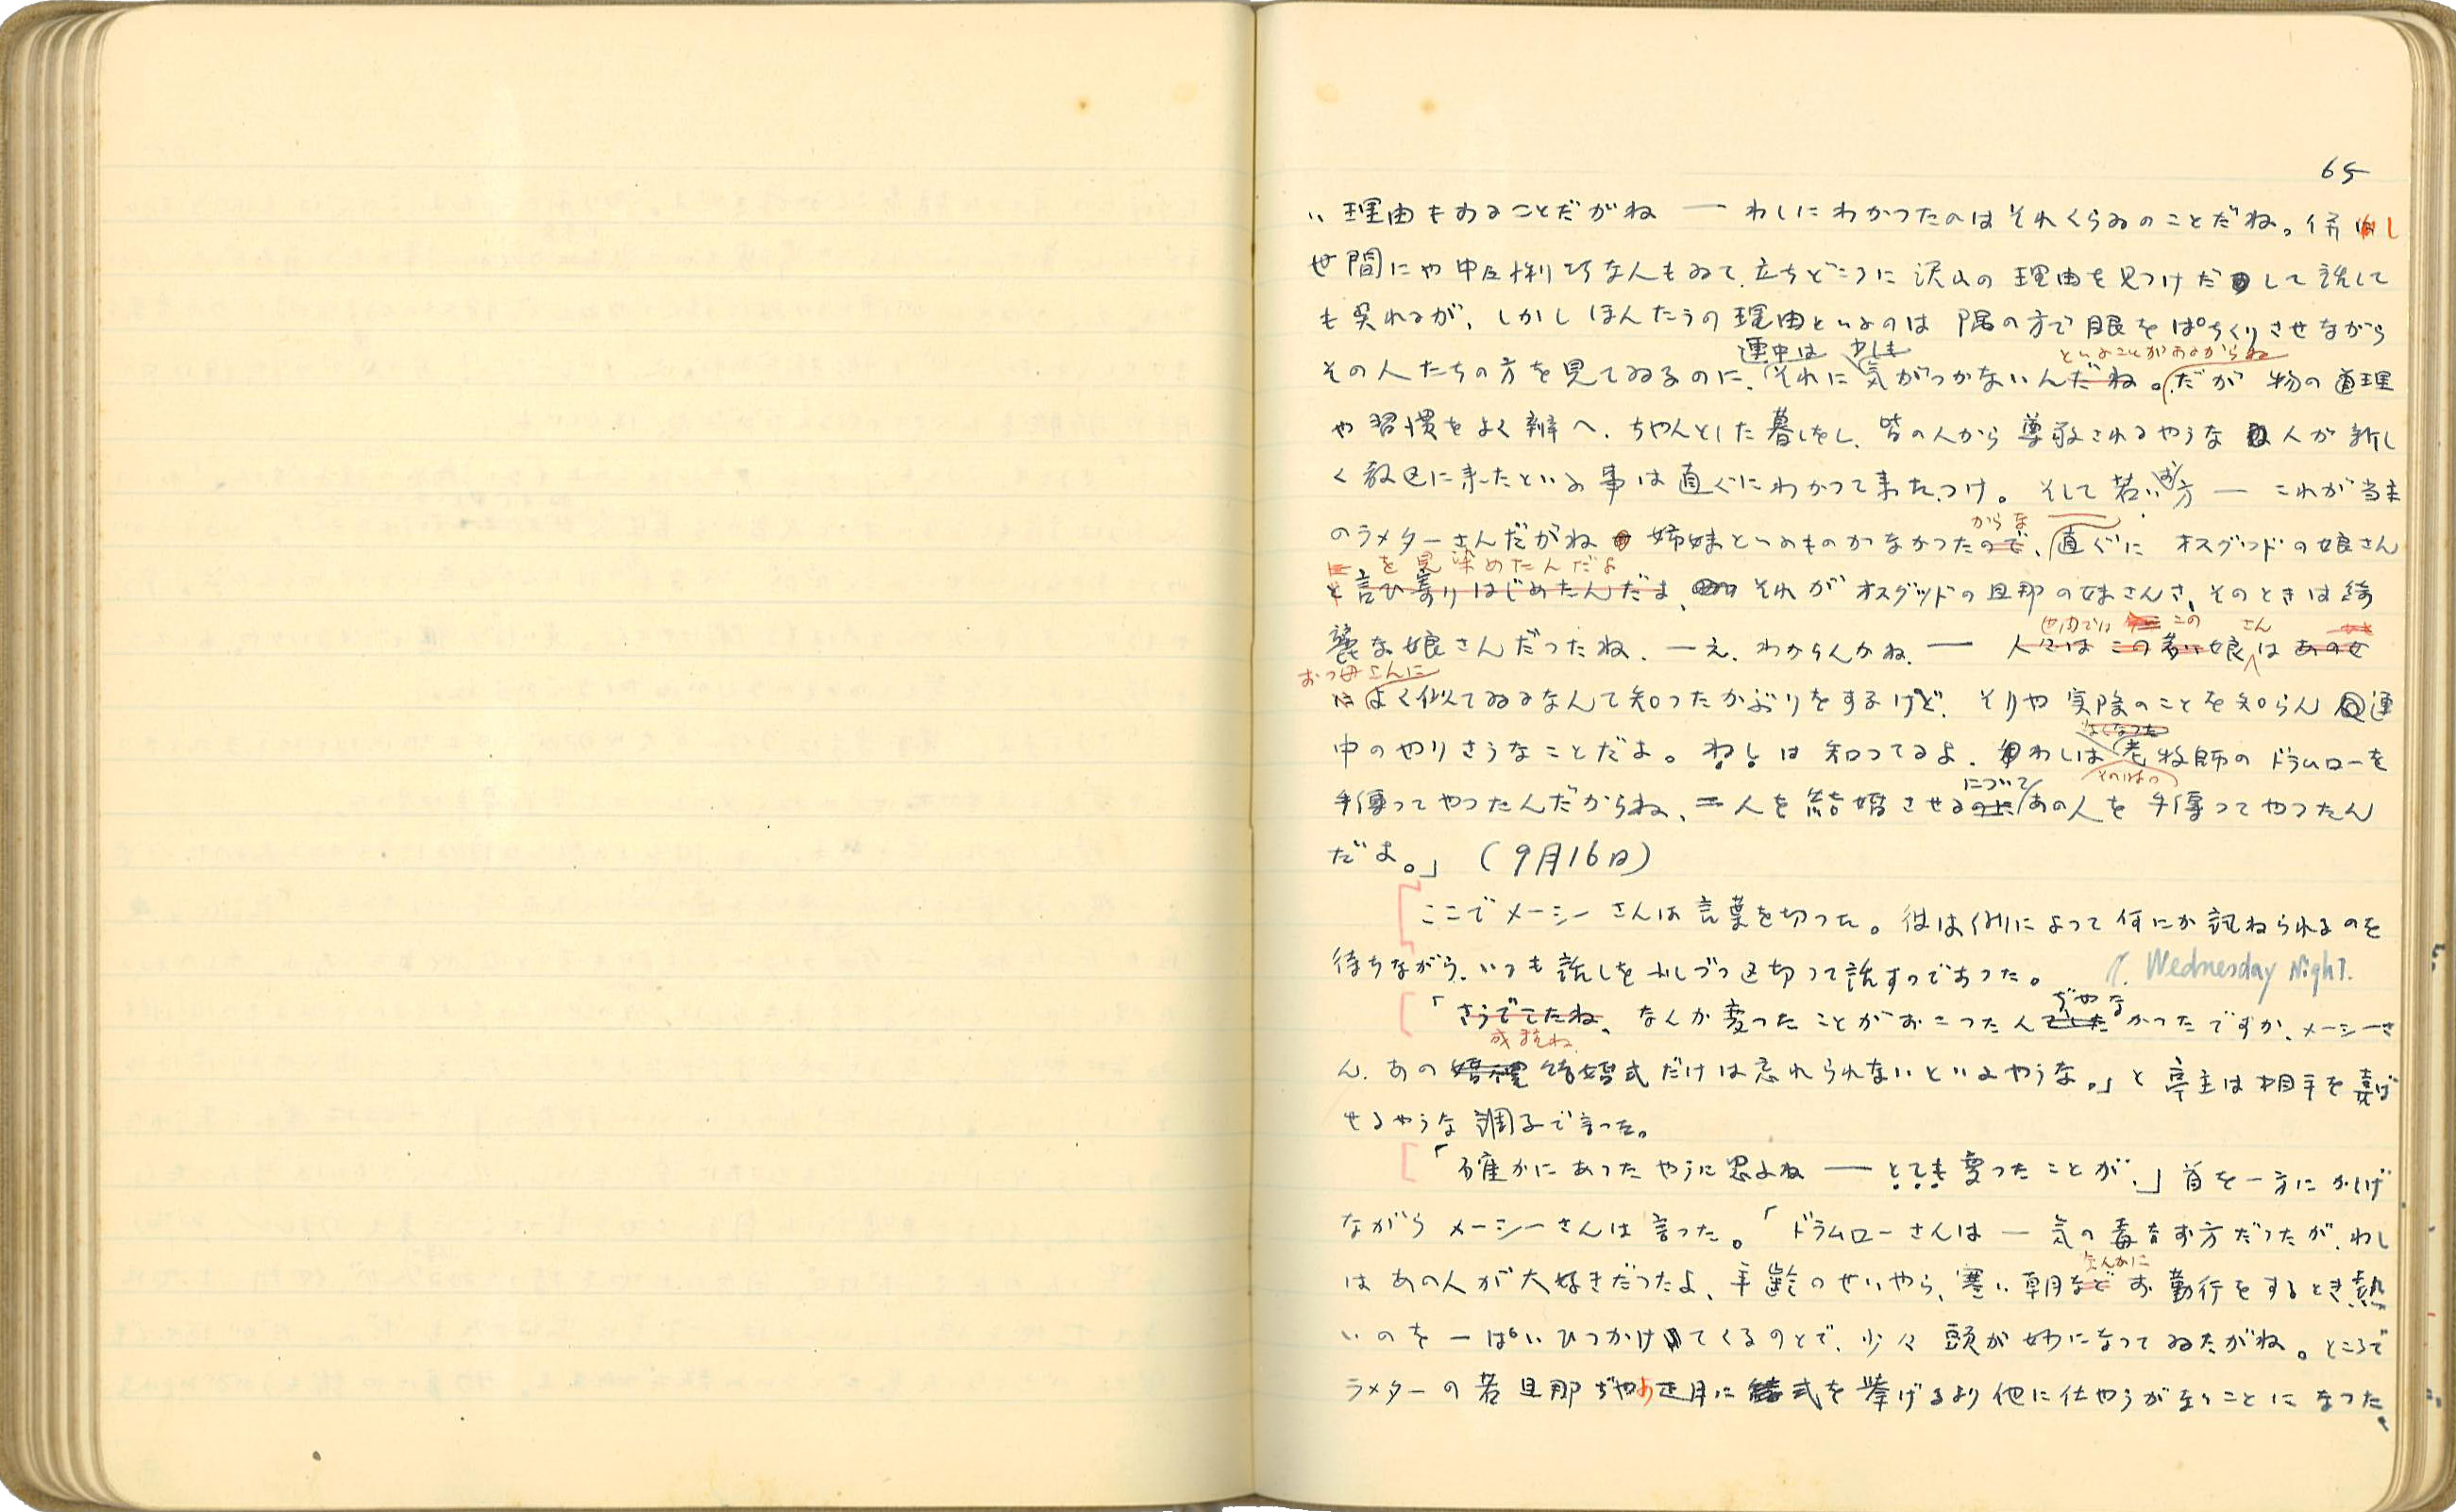 65
い理由もあることだがね ── わしにわかつたのはそれくらゐのことだね。併し
世間にや中々悧巧な人もゐて、立ちどころに沢山の理由を見つけだして話して
も呉れるが、しかしほんたうの理由といふのは隅の方で眼をぱちくりさせながら
連中は 少しも といふことがあるからね
その人たちの方を見てゐるのに、それに気がつかないんだね。だが物の道理
や習慣をよく辨へ、ちやんとした暮しをし、皆の人から尊敬されるやうな人が新し
く教区に来たといふ事は直ぐにわかつて来たつけ。そして若いお方 ── これが当主
からな
のラメターさんだがね 姉妹といふものがなかつたので、直ぐに オスグッドの娘さん
を見染めたんだよ
と言ひ寄りはじめたんだよ、それがオスグッドの旦那の妹さんさ、そのときは綺
世間では この さん
麗な娘さんだつたね、─え、わからんかね、── 人々はこの若い娘はあの女
おつ母さんに
によく似てゐるなんて知つたかぶりをするけど、そりや実際のことを知らん連
亡くなつた
中のやりさうなことだよ。わしは知つてるよ、わしは老牧師のドラムローを
についてそのはつ
手傳つてやつたんだからね、二人を結婚させるのにあの人を手傳つてやつたん
だよ。」(9月16日)
ここでメーシーさんは言葉を切つた。彼は例によつて何にか訊ねられるのを
待ちながら、いつも話しを少しづつ区切つて話すのであつた。 Wednesday Night.
ぢやな
「さうでしたね、なんか変つたことがおこつたんでしたかつたですか、メーシーさ
成程ね
ん、あの婚禮結婚式だけは忘れられないといふやうな。」と亭主は相手を喜ば
せるやうな調子で言つた。
「確かにあつたやうに思ふね ── とても変つたことが。」首を一方にかしげ
ながらメーシーさんは言つた。「ドラムローさんは─気の毒なお方だつたが、わし
なんかに
はあの人が大好きだつたよ、年齢のせいやら、寒い朝などお勤行をするとき熱
いのを一ぱいひつかけてくるのとで、少々頭が妙になつてゐたがね。ところで
ラメターの若旦那ぢやあ正月に式を挙げるより他に仕やうがないことになつた、